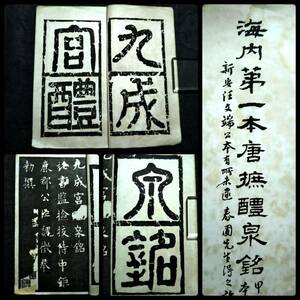 九成
宮醴
海内第一本唐摭醴泉銘
新安汪文端公本有所未逮 春園先生得之
泉銘
九成宮 泉銘
秘書監檢挍侍中鉅
鹿郡公臣魏徵奉
勑撰